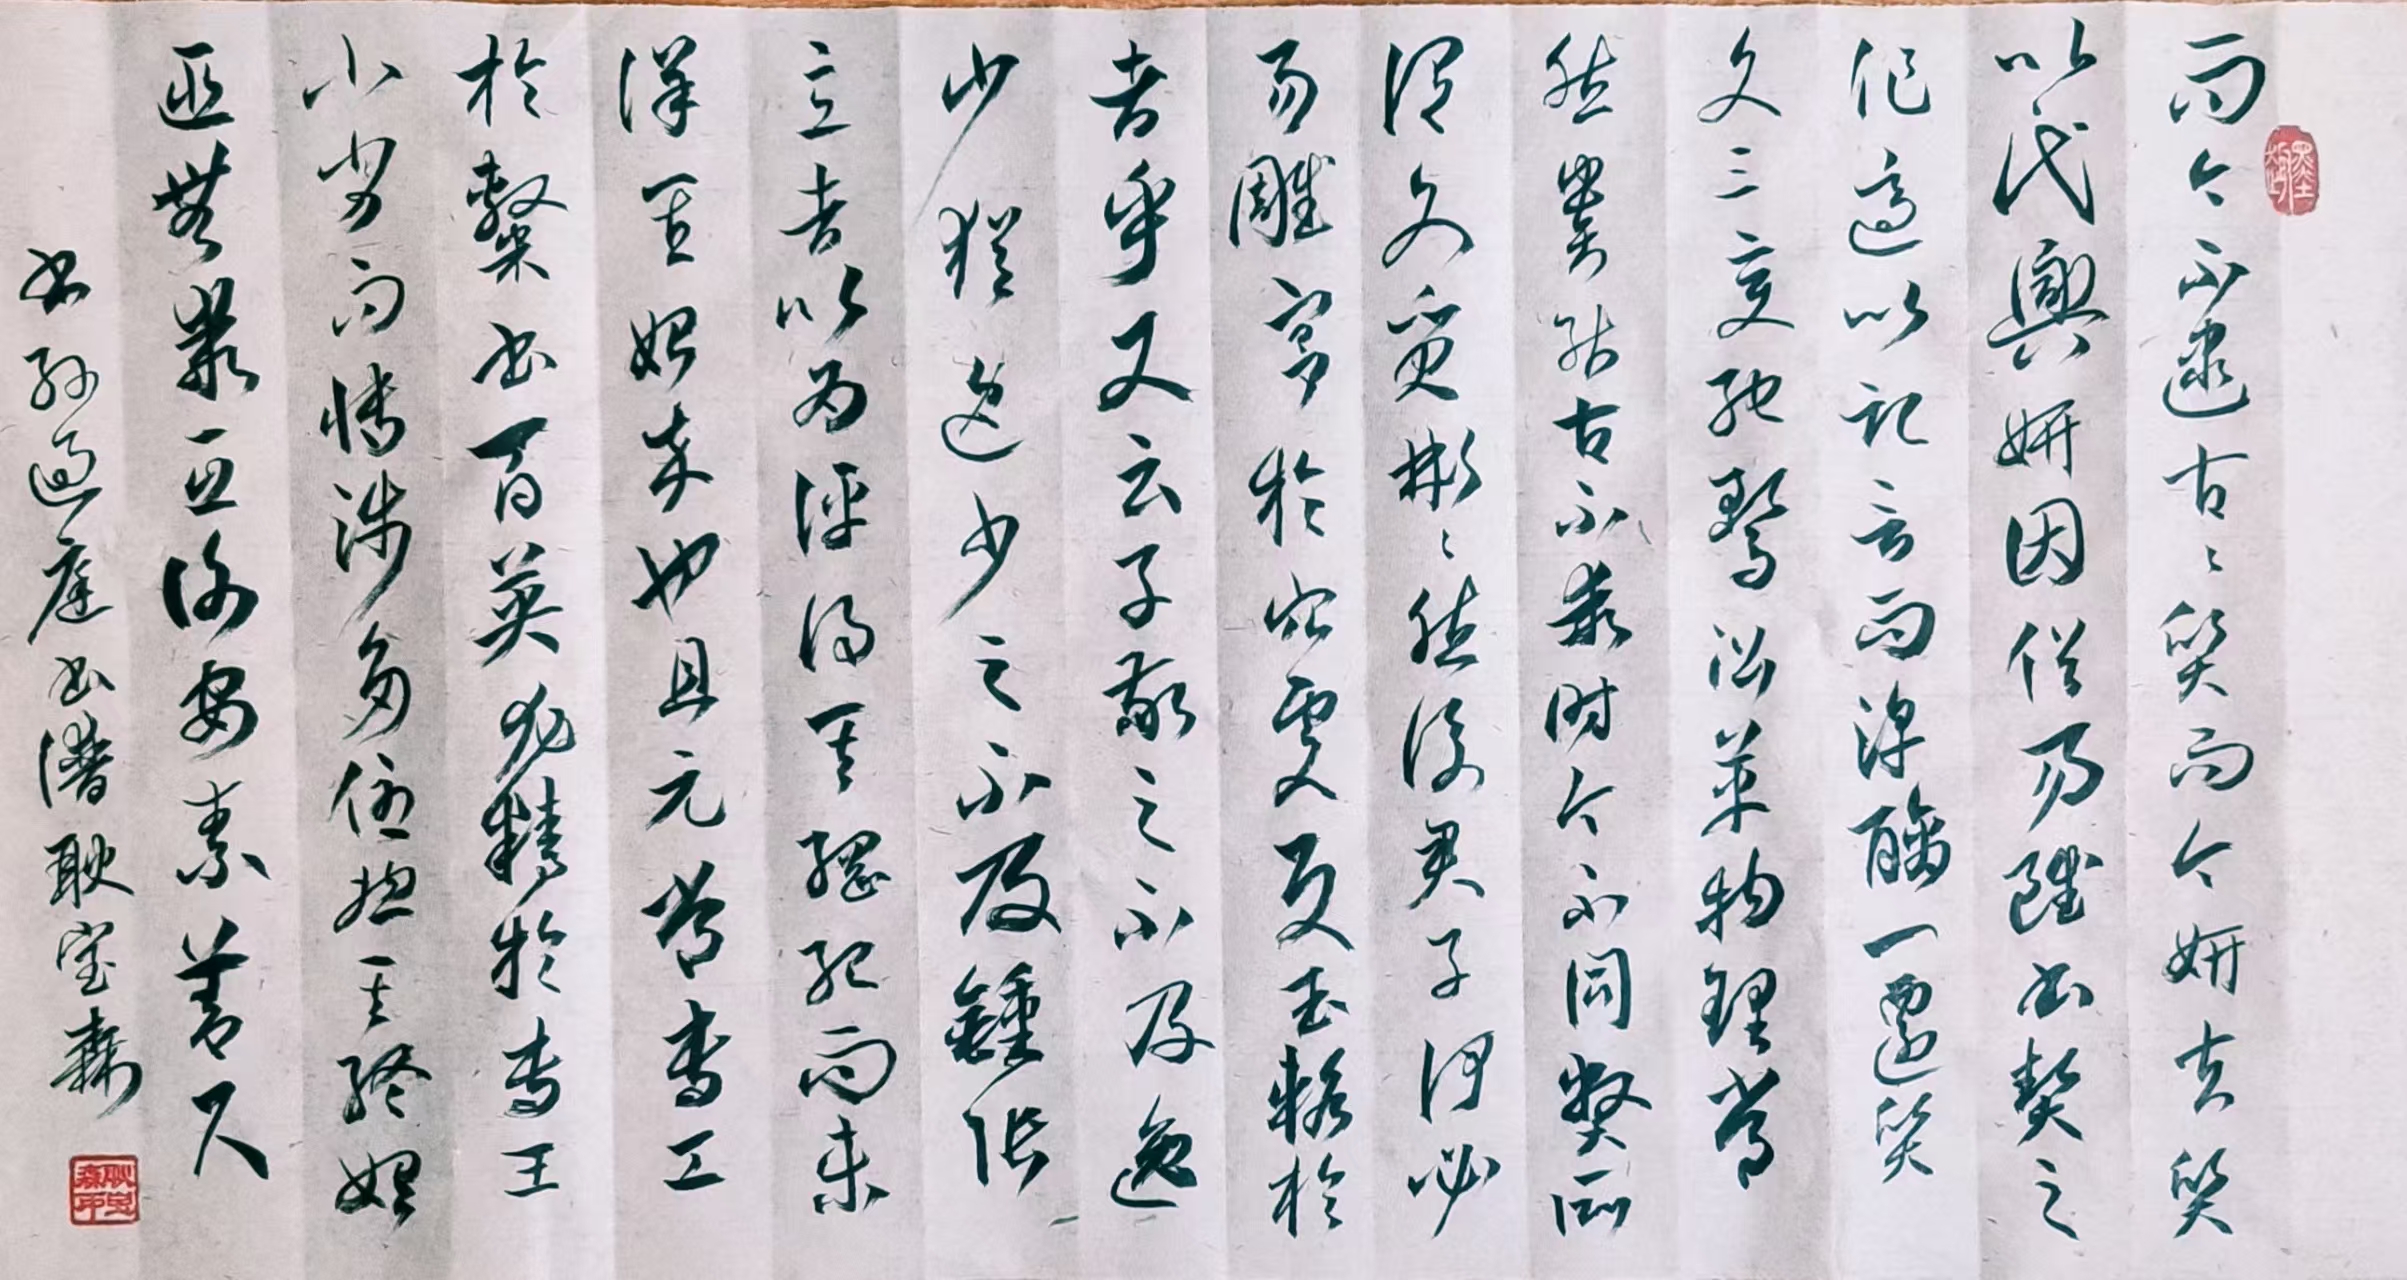 而今不逮古〻質而今妍夫質
以代興妍因俗易雖書契之
作適以記言而淳醨一遷質
文三變馳騖沿革物理常
然貴能古不乖時今不同弊所
謂文質彬〻然後君子何必
易雕宮於穴處反玉輅於
者乎又云子敬之不及逸
少猶逸少之不及鍾張
意者以為評得其綱紀而未
詳其始卒也且元常專工
於隸書百英尤精於專工
小劣而博涉多優總其終始
匪無乖互謝安素善尺
書孫過庭書譜耿寶森